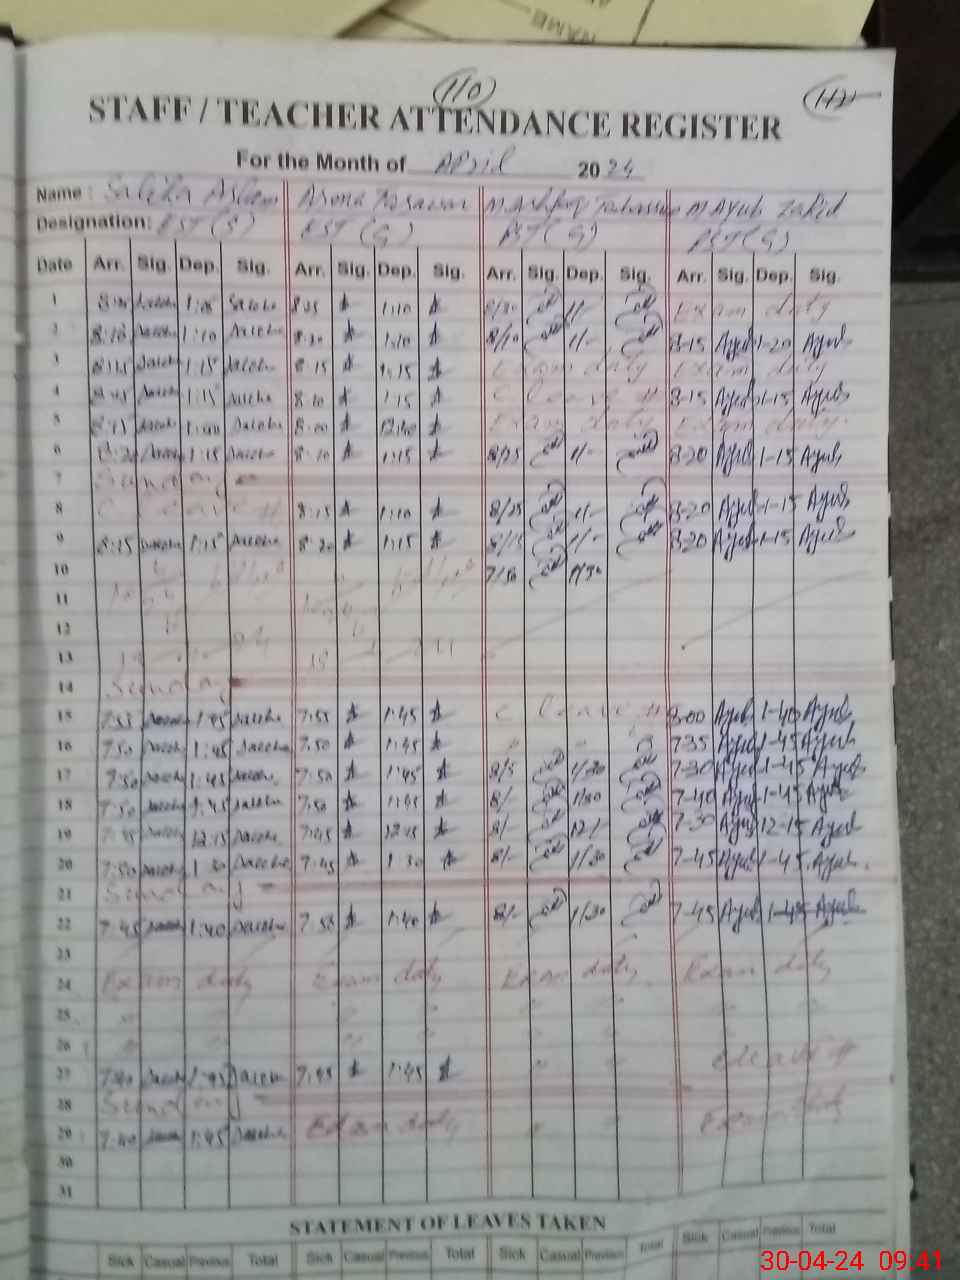 NAME
110
STAFF / TEACHER ATTENDANCE REGISTER
For the Month of April 2024
Name : Saleha Aslam Asma Tasawar M Ashfaq M Ayub Zahid
Designation: EST (S) EST (G) PST (G) PST (G)
Date Arr. Sig. Dep. Sig. Arr. Sig. Dep. Sig. Arr. Sig. Dep. Sig. Arr. Sig. Dep. Sig.
1 Saleha 1:10 Exam duty
2 8:10 Saleha 1:10 Saleha 8:20 1:10 8/10 1/- 8-15 Ayub 1-20 Ayub
3 8:15 Saleha 1:15 Saleha 8:15 1:15 Exam duty Exam duty
4 Saleha 1:15 Saleha 8:10 1:15 C Leave # 8-15 Ayub 1-15 Ayub
5 8:15 Saleha Saleha 8:00 Exam duty Exam duty.
6 8:20 1:15 Saleha 8:10 1:15 8/25 1/- 8-20 Ayub 1-15 Ayub
7 Sunday
8 C Leave # 8:15 1:10 8/25 1/- 8-20 Ayub 1-15 Ayub
9 8:15 Saleha 1:15 Saleha 8:20 1:15 8/15 1/- 8-20 Ayub 1-15 Ayub
10 7/50 1/30
11
12
13
14 Sunday
15 7:55 Saleha 1:45 Saleha 7:55 1:45 C Leave # 8-00 Ayub 1-40 Ayub
16 7:50 Saleha 1:45 Saleha 7:50 1:45 " " 7-35 Ayub 1-45 Ayub
17 7:50 Saleha 1:45 Saleha 7:50 1:45 8/5 1/30 7-30 Ayub 1-45 Ayub
18 7:50 Saleha 1:45 Saleha 7:50 1:45 8/- 1/30 7-40 Ayub 1-45 Ayub
19 7:45 Saleha 12:15 Saleha 7:45 12:15 8/- 12/- 7-30 Ayub 12-15 Ayub
20 7:50 Saleha 1:30 Saleha 7:45 1:30 8/- 1/30 7-45 Ayub 1-45 Ayub.
21 Sunday
22 7:45 Saleha 1:40 Saleha 7:50 1:40 8/- 1/30 7-45 Ayub 1-45 Ayub
23
24 Exam duty Exam duty Exam duty Exam duty
25 " " " "
26 " " " "
27 7:40 Saleha 1:45 Saleha 7:45 1:45 " " C Leave #
28 Sunday
29 7:40 Saleha 1:45 Saleha Exam duty " " Exam duty
30
31
STATEMENT OF LEAVES TAKEN
Sick Casual Previous Total Sick Casual Previous Total Sick Casual Previous Total Sick Casual Previous Total
30-04-24 09:41